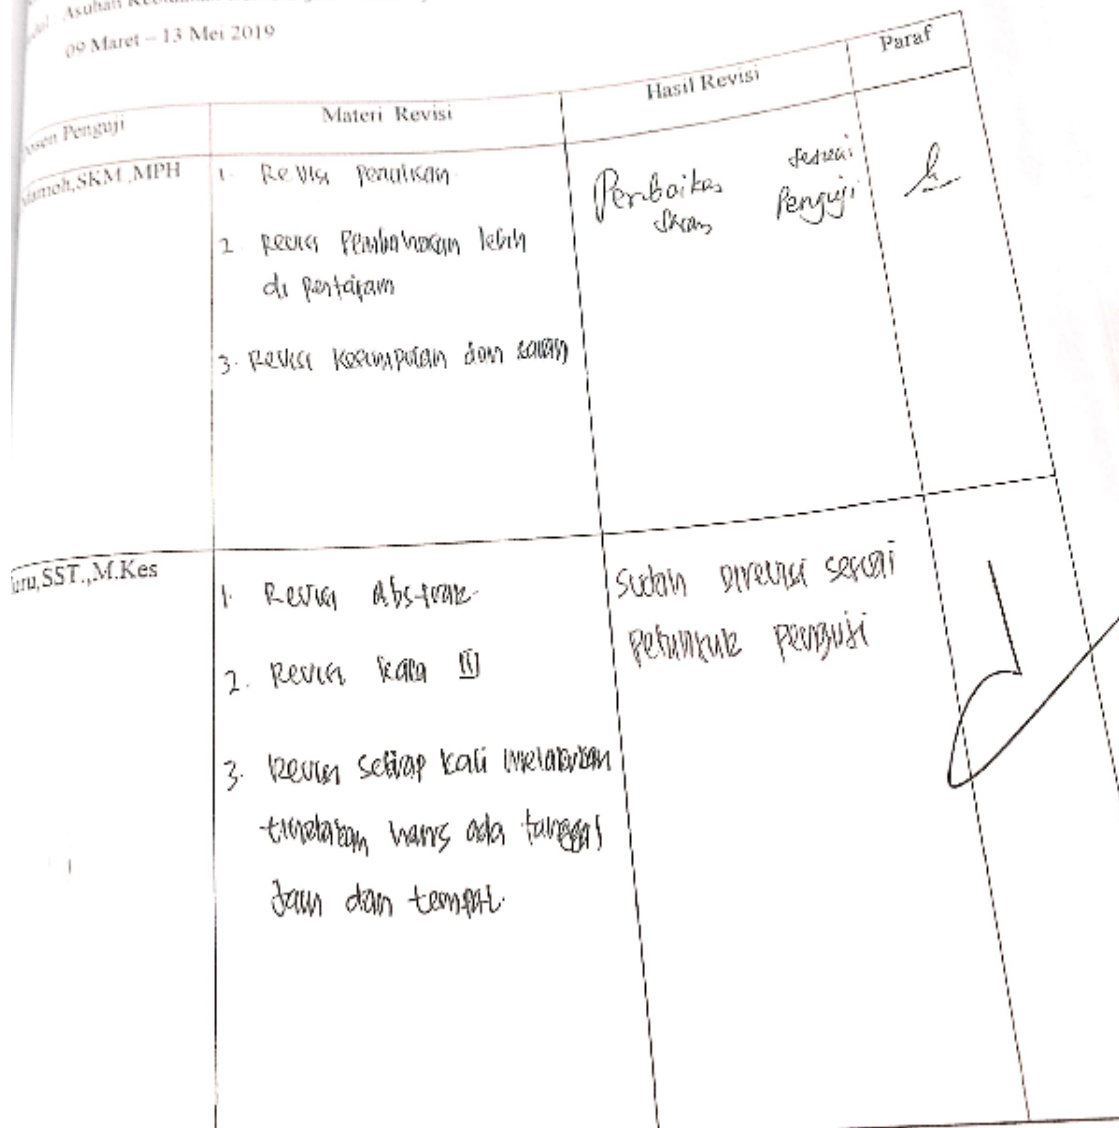 Asuhan
09 Maret – 13 Mei 2019
Penguji
Materi Revisi
Hasil Revisi
Paraf
SKM.,MPH
1. Revisi Penulisan
2. Revisi Pembahasan lebih
di pertajam
3. Revisi Kesimpulan dan saran
Perbaikan sesuai
saran Penguji
SST.,M.Kes
1. Revisi Abstrak
2. Revisi kala III
3. Revisi setiap kali melakukan
tindakan harus ada tanggal
Jam dan tempat.
Sudah Direvisi sesuai
Petunjuk penguji